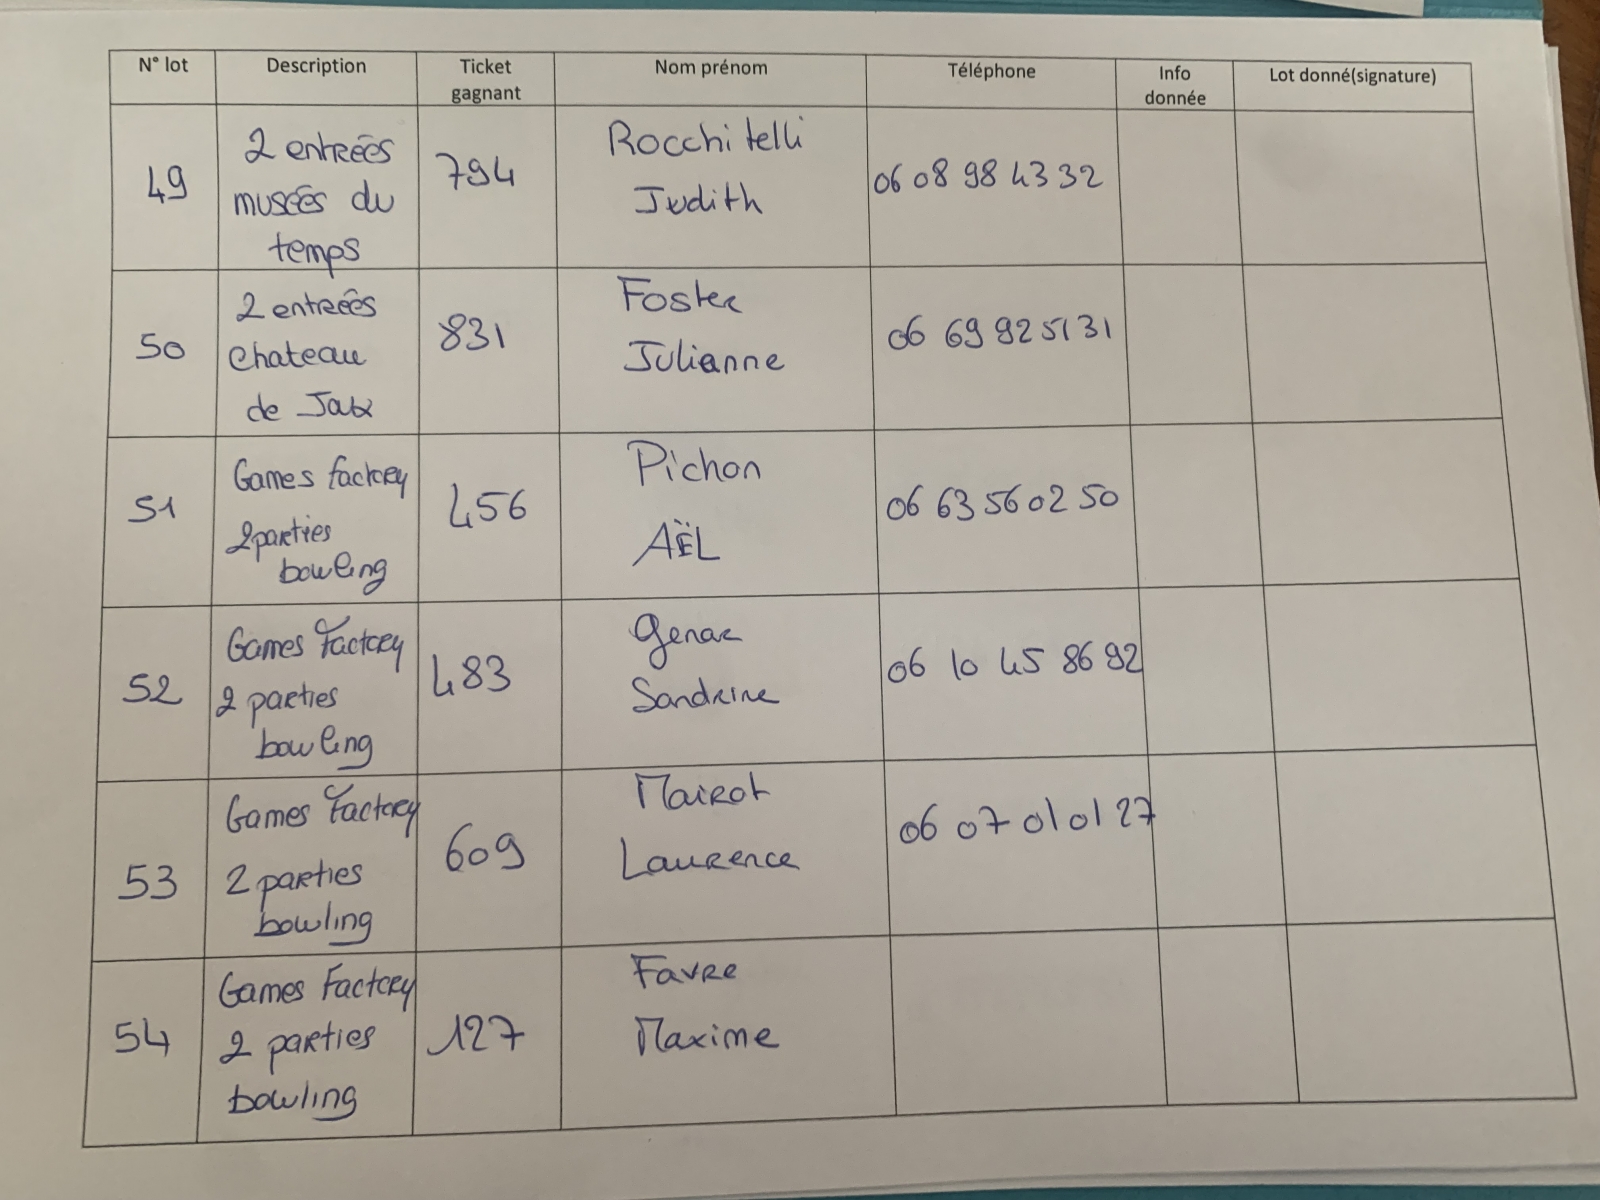 N° lot Description Ticket gagnant Nom prénom Téléphone Info donnée Lot donné(signature)
49 2 entrées musées du temps 794 Rocchitelli Judith 06 08 98 43 32
50 2 entreés chateau de Joux 831 Foster Julianne 06 69 92 51 31
51 Games factory 2 parties bowling 456 Pichon AËL 06 63 56 02 50
52 Games Factory 2 parties bowling 483 Genar Sandrine 06 10 45 86 92
53 Games Factory 2 parties bowling 609 Mairot Laurence 06 07 01 01 27
54 Games Factory 2 parties bowling 127 Favre Maxime